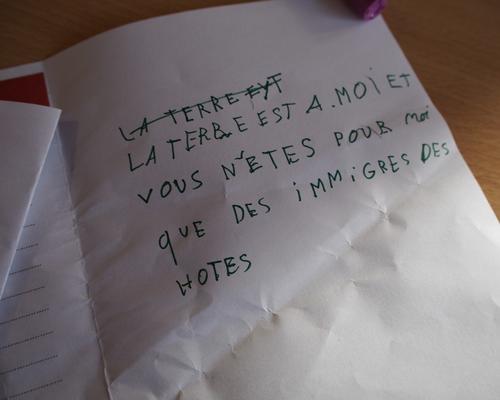 LA TERRE EYT
LA TERRE EST A.MOi ET
VOUS N'ETES POUR moi
qUE DES iMMiGRES DES
HOTES